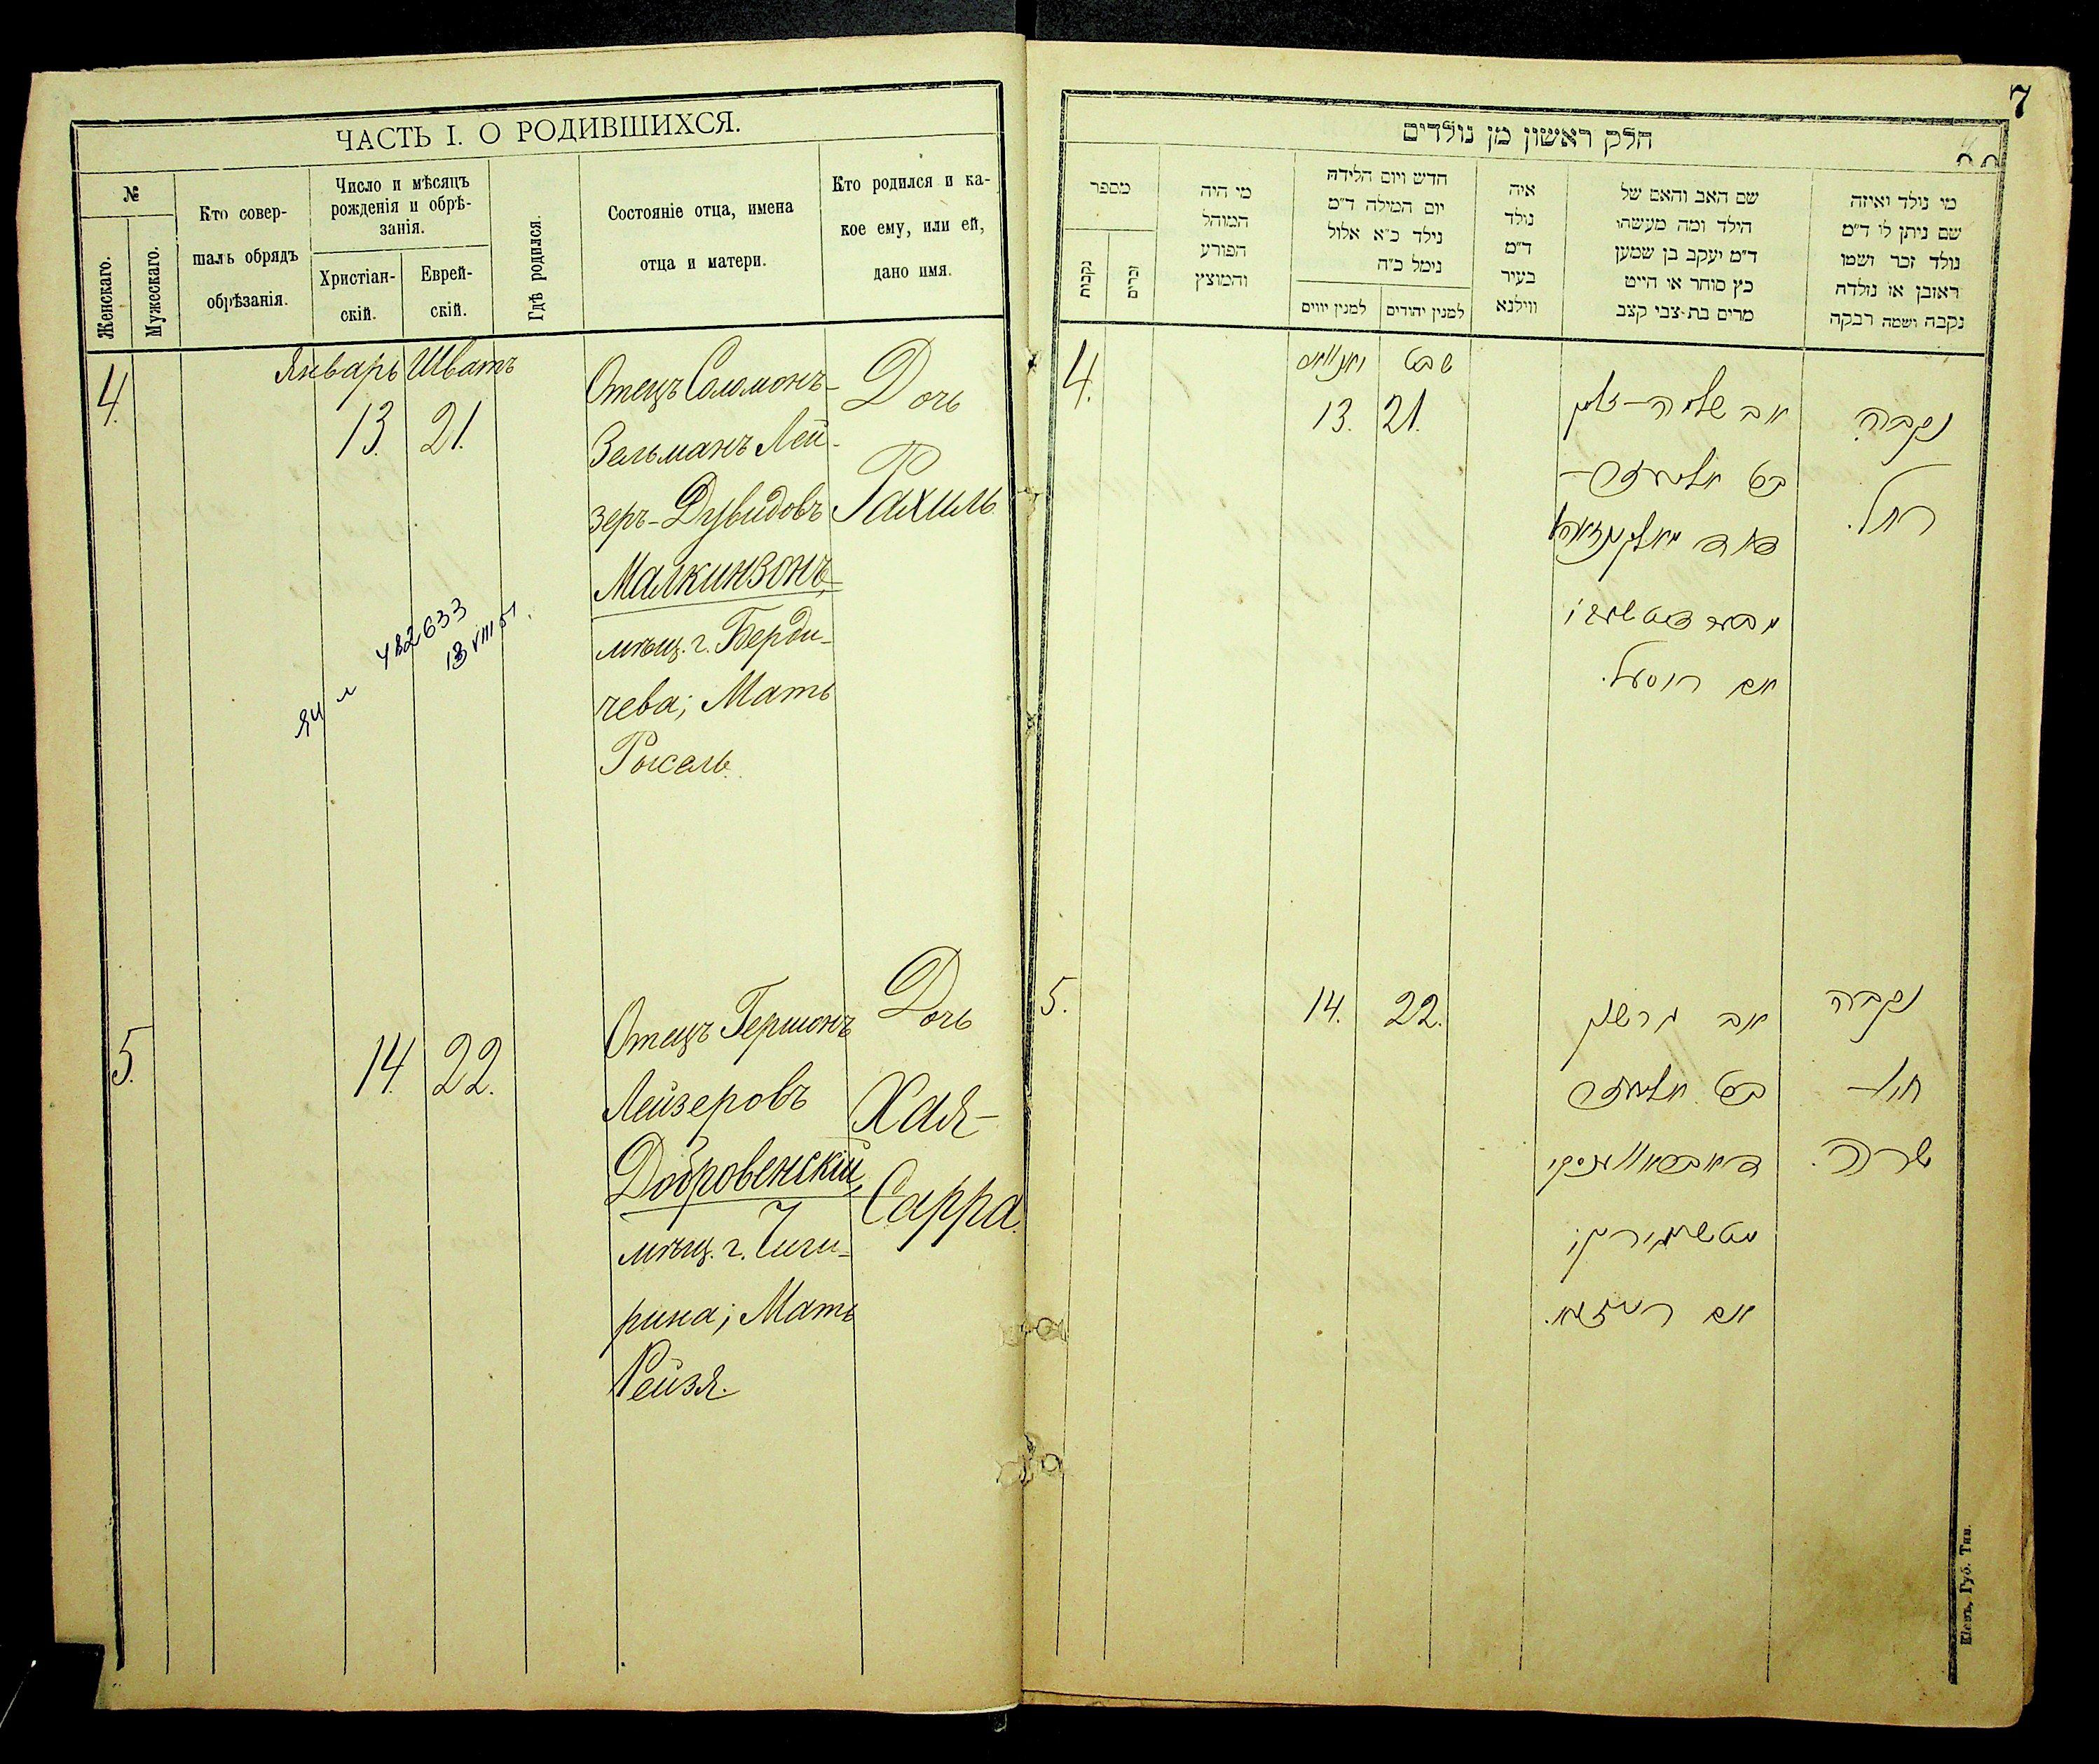 ЧАСТЬ I. О РОДИВШИХСЯ.
№
Женскаго.
Мужескаго.
Кто совер-
шалъ обрядъ
обрѣзанія.
Число и мѣсяцъ
рожденія и обрѣ-
занія.
Христіан-
скій.
Еврей-
скій.
Гдѣ родился.
Состояніе отца, имена
отца и матери.
Кто родился и ка-
кое ему, или ей,
дано имя.
4.
Январь Шватъ
13. 21.
Отецъ Соломонъ-
Зельманъ Лей-
зеръ-Дувидовъ
Малкинзонъ,
мѣщ. г. Берди-
чева; Мать
Рысель.
Дочь
Рахиль.
482633
13 VIII 51
5.
14. 22.
Отецъ Гершонъ
Лейзеровъ
Добровенскій,
мѣщ. г. Чиги-
рина; Мать
Рейзя.
Дочь
Хая-
Сарра.
7
חלק ראשון מן נולדים
מספר
נקבות
זכרים
מי היה
המוהל
הפורע
והמוצץ
חדש ויום הלידה
יום המילה ד"מ
נילד כ"א אלול
נימל כ"ה
למנין יווים
למנין יהודים
איה
נולד
ד"מ
בעיר
ווילנא
שם האב והאם של
הילד ומה מעשהו
ד"מ יעקב בן שמעון
כץ סוחר או חייט
מרים בת צבי קצב
מי נולד ואיזה
שם ניתן לו ד"מ
נולד זכר ושמו
ראובן או נולדה
נקבה ושמה רבקה
4.
יאנואר שבט
13. 21.
אב שלמה-זלמן
אם רוסיל.
נקבה
רחל.
5.
14. 22.
אב גרשון
אם רייזא.
נקבה
חי'-
שרה.
Кіевъ, Губ. Тип.